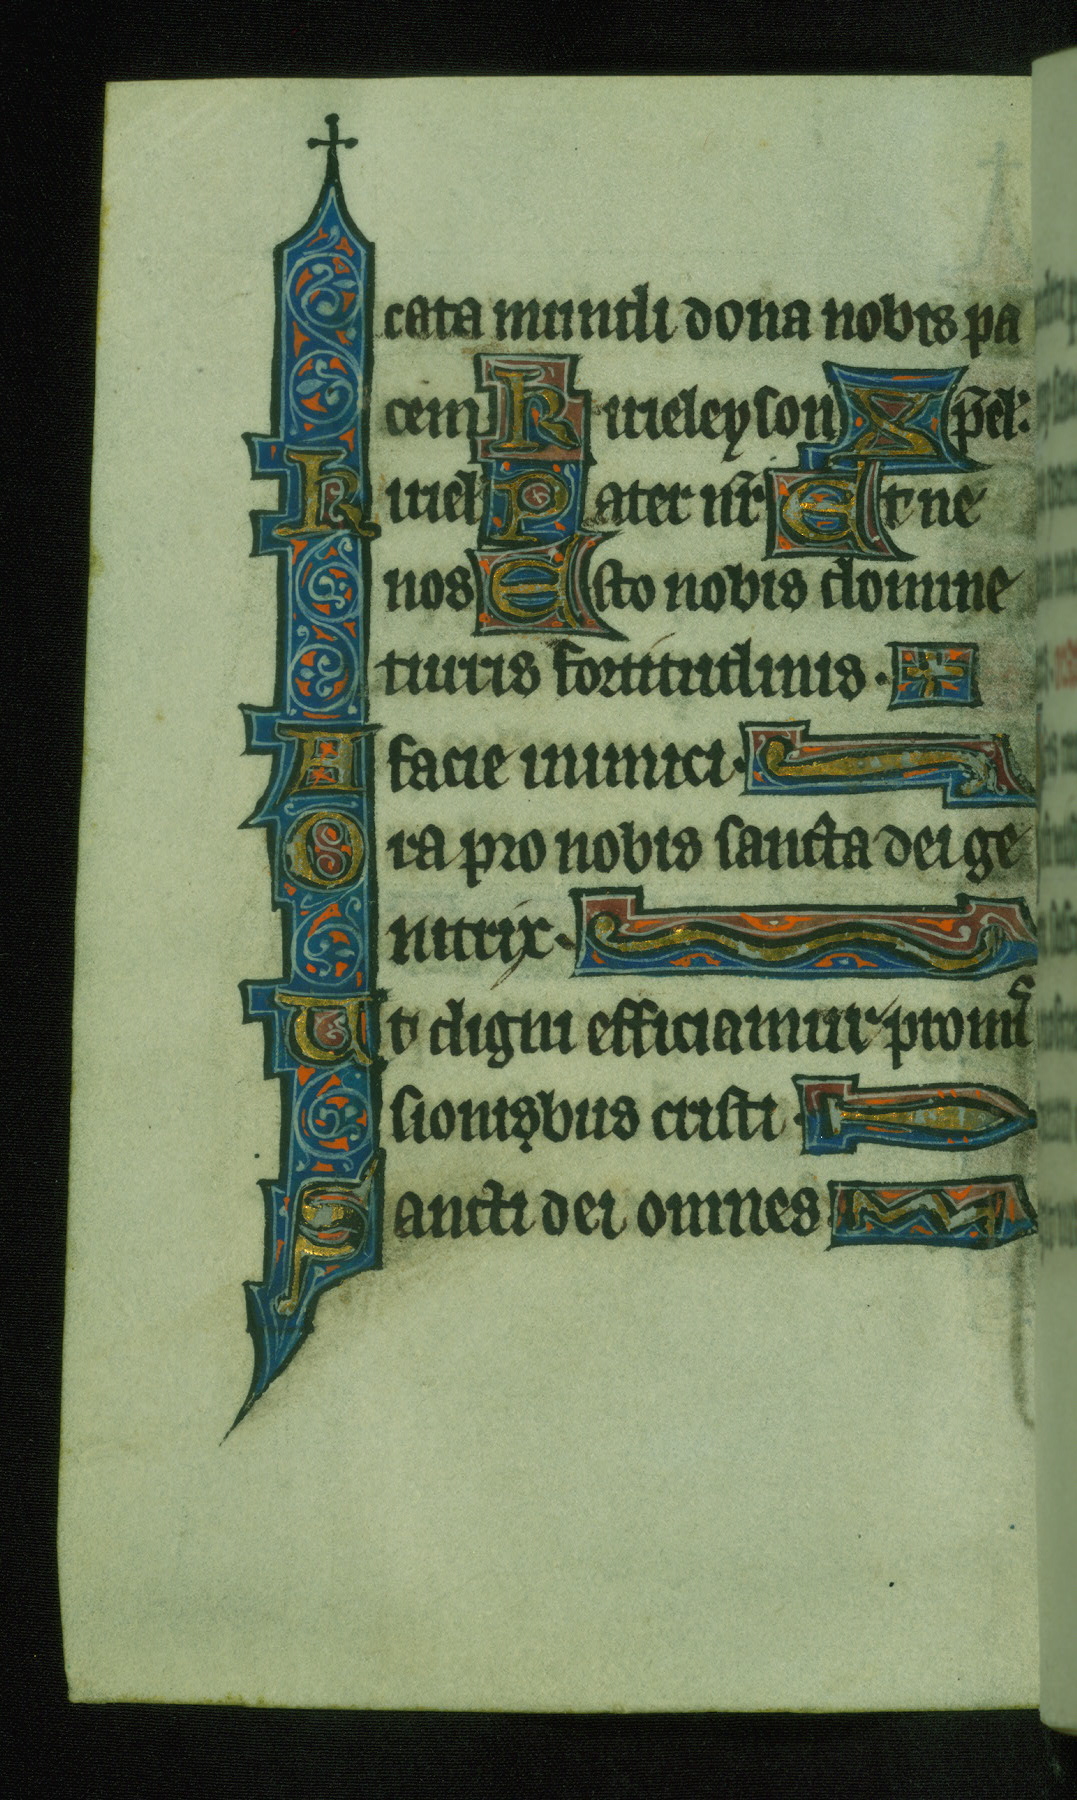 cata mundi dona nobis pa
cem Kirieleyson Xp̄el'
Kiriel' Pater nr̄ Et ne
nos Esto nobis domine
turris fortitudinis.
A facie inimici.
Ora pro nobis sancta dei ge
nitrix.
Ut digni efficiamur promis
sionibus cristi.
Sancti dei omnes